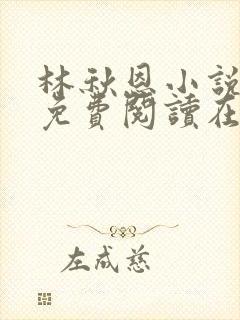 林秋恩小說
免費閱讀在
左成慈